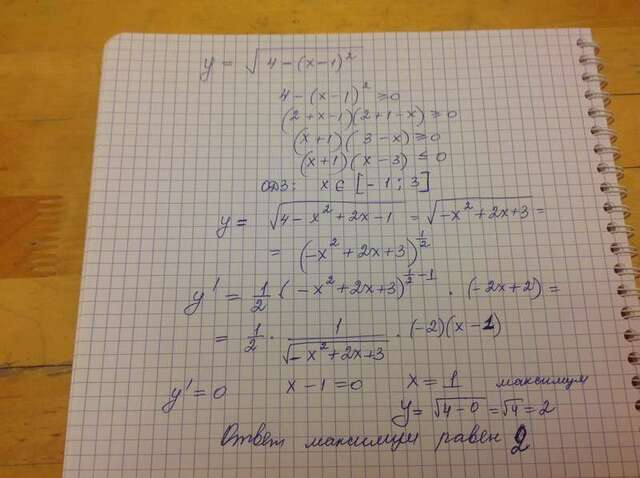 y = √(4 − (x−1)²)
4 − (x−1)² ≥ 0
(2+x−1)(2+1−x) ≥ 0
(x+1)(3−x) ≥ 0
(x+1)(x−3) ≤ 0
ОДЗ: x ∈ [−1; 3]
y = √(4 − x² + 2x − 1) = √(−x² + 2x + 3) =
= (−x² + 2x + 3)^(1/2)
y' = 1/2 (−x² + 2x + 3)^(1/2 − 1) · (−2x+2) =
= 1/2 · 1/√(−x² + 2x + 3) · (−2)(x−1)
y' = 0 x − 1 = 0 x = 1 максимум
y = √(4−0) = √4 = 2
Ответ максимум равен 2